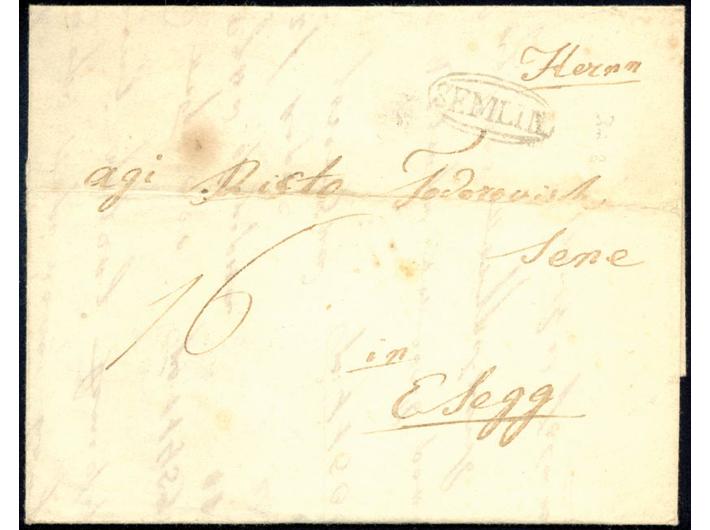 Herrn
SEMLIN
agi Risto Todorovich
Sene
16
in
Esegg